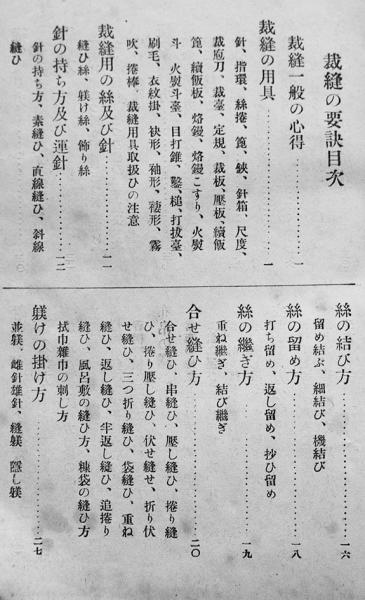 裁縫の要訣目次
裁縫一般の心得……一
裁縫の用具……一
針、指環、絲捲、箆、鋏、針箱、尺度、
裁庖刀、裁臺、定規、裁板、壓板、續飯
箆、續飯板、烙鏝、烙鏝こすり、火熨
斗、火熨斗臺、目打錐、鑿、槌、打拔臺、
刷毛、衣紋掛、袂形、袖形、褄形、霧
吹、捲棒、裁縫用具取扱ひの注意
裁縫用の絲及び針……一一
縫ひ絲、躾け絲、飾り絲
針の持ち方及び運針……一二
針の持ち方、素縫ひ、直線縫ひ、斜線
縫ひ
絲の結び方……一六
留め結ぶ、細結び、機結び
絲の留め方……一八
打ち留め、返し留め、抄ひ留め
絲の繼ぎ方……一九
重ね繼ぎ、結び繼ぎ
合せ縫ひ方……二〇
合せ縫ひ、串縫ひ、壓し縫ひ、捲り縫
ひ、捲り壓し縫ひ、伏せ縫せ、折り伏
せ縫ひ、三つ折り縫ひ、袋縫ひ、重ね
縫ひ、返し縫ひ、半返し縫ひ、追捲り
縫ひ、風呂敷の縫ひ方、糠袋の縫ひ方
拭巾雜巾の刺し方
躾けの掛け方……二七
並躾、雌針雄針、縫躾、隱し躾